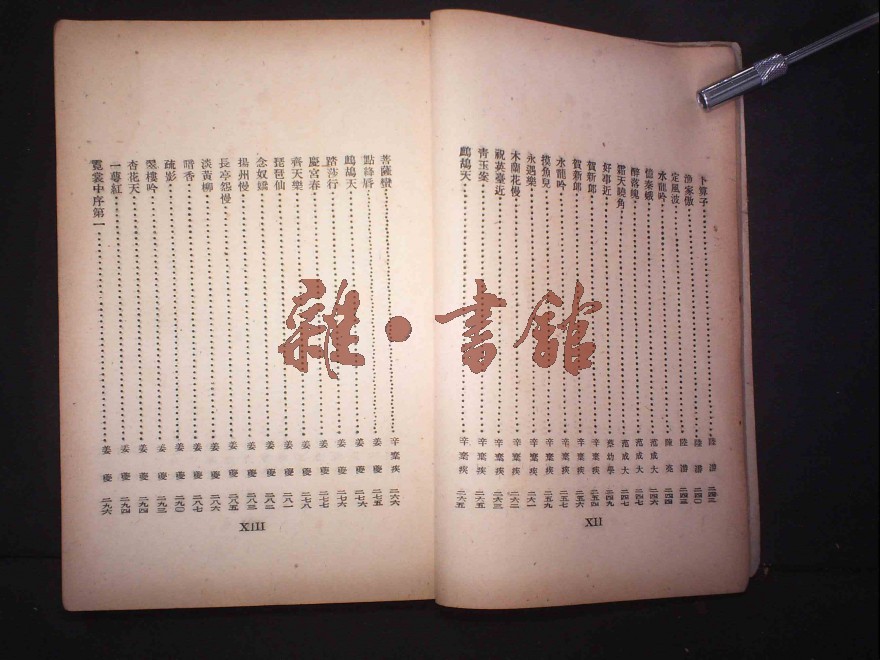 卜算子 陸游
漁家傲 陸游 二四〇
定風波 陸游 二四三
水龍吟 陳亮 二四四
憶秦娥 范成大 二四六
醉落魄 范成大 二四七
霜天曉角 范成大 二四七
好事近 蔡幼學 二四九
賀新郎 辛棄疾
賀新郎 辛棄疾 二五四
水龍吟 辛棄疾 二五七
摸魚兒 辛棄疾 二五九
永遇樂 辛棄疾 二六一
木蘭花慢 辛棄疾 二六二
祝英臺近 辛棄疾 二六三
青玉案 辛棄疾 二六五
鷓鴣天 辛棄疾 二六五
XII
菩薩蠻 辛棄疾 二六六
點絳唇 姜夔 二七五
鷓鴣天 姜夔 二七六
踏莎行 姜夔 二七六
慶宮春 姜夔 二七七
齊天樂 姜夔 二七八
琵琶仙 姜夔 二八一
念奴嬌 姜夔 二八二
揚州慢 姜夔 二八三
長亭怨慢 姜夔 二八五
淡黃柳 姜夔 二八七
暗香 姜夔
疏影 姜夔 二九〇
翠樓吟 姜夔
杏花天 姜夔 二九四
一萼紅 姜夔 二九四
霓裳中序第一 姜夔 二九六
XIII
雜·書館